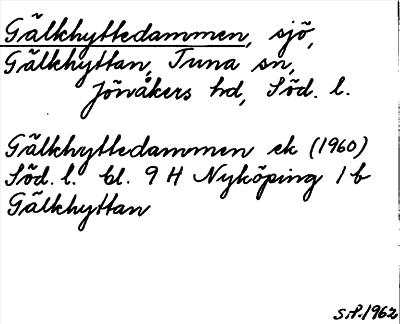 Gälkhyttedammen, sjö,
Gälkhyttan, Tuna sn,
Jönåkers hd, Söd. l.
Gälkhyttedammen ek (1960)
Söd. l. bl. 9 H Nyköping 1 b
Gälkhyttan
S.P. 1962